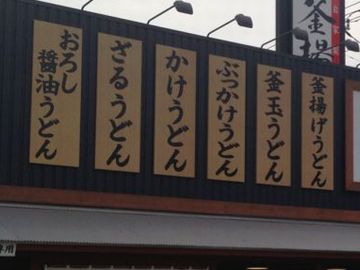 おろし
醤油うどん
ざるうどん
かけうどん
ぶっかけうどん
釜玉うどん
釜揚げうどん
釜揚
専用